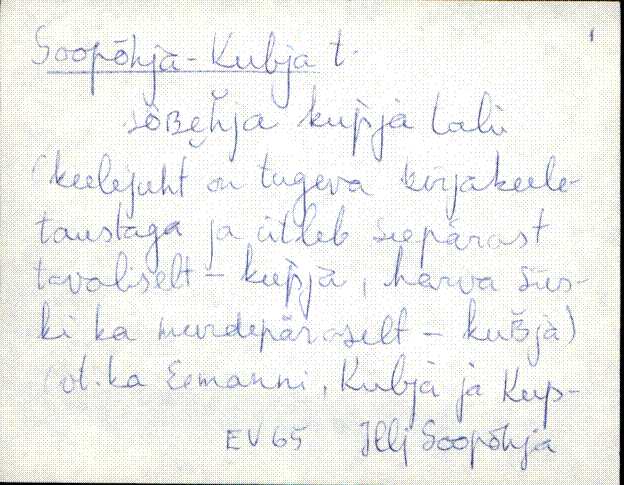 1
Soopõhja-Kubja t.
sòʙĕh̆ja kup̀jà talu
(keelejuht on tugeva kirjakeele-
taustaga ja ütleb seepärast
tavaliselt - kup̀jà, harva siis-
ki ka murdepäraselt - kuʙ̆jà)
(vt. ka Eemanni, Kubja ja Kups-
EV 65 Illj Soopõhja